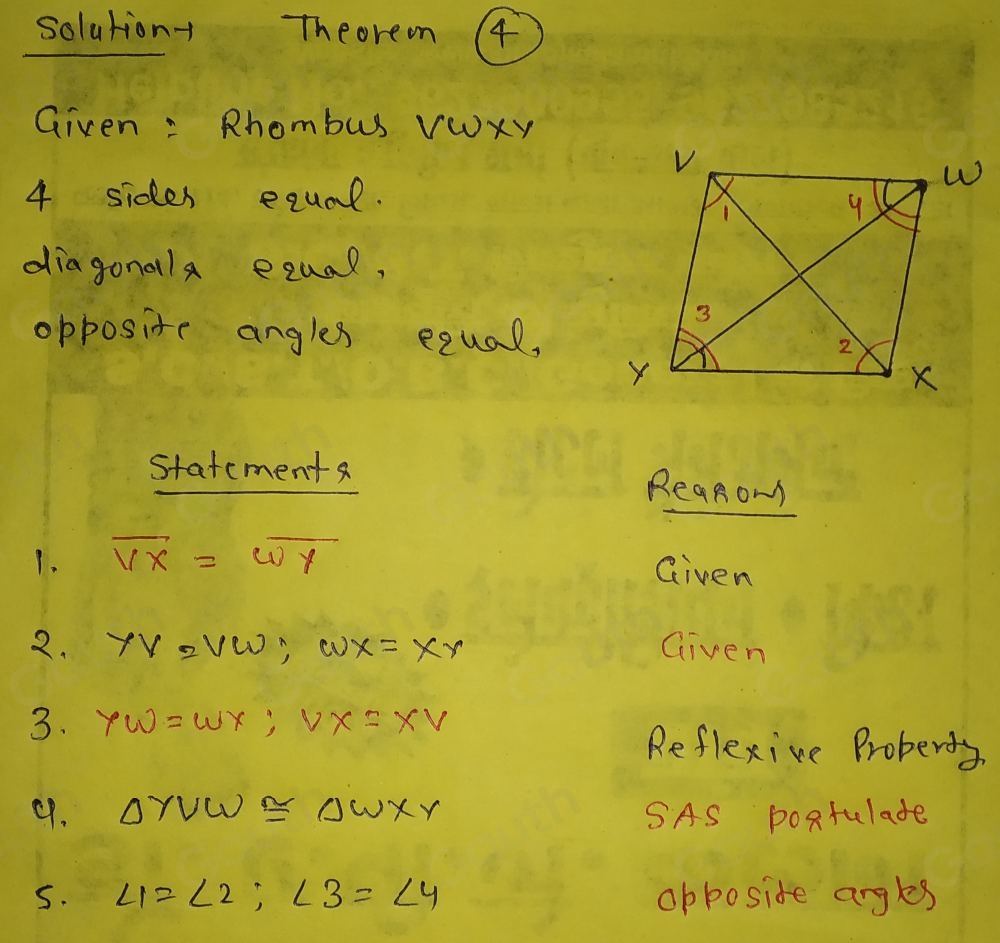 Solution→ Theorem 4
Given : Rhombus VWXY
4 sides equal.
diagonals equal,
opposite angles equal,
V
W
1
4
3
2
Y
X
Statements
Reasons
1. VX = WY
Given
2. YV = VW ; WX = XY
Given
3. YW = WY ; VX = XV
Reflexive Property
4. ΔYVW ≅ ΔWXY
SAS postulate
5. ∠1 = ∠2 ; ∠3 = ∠4
opposite angles